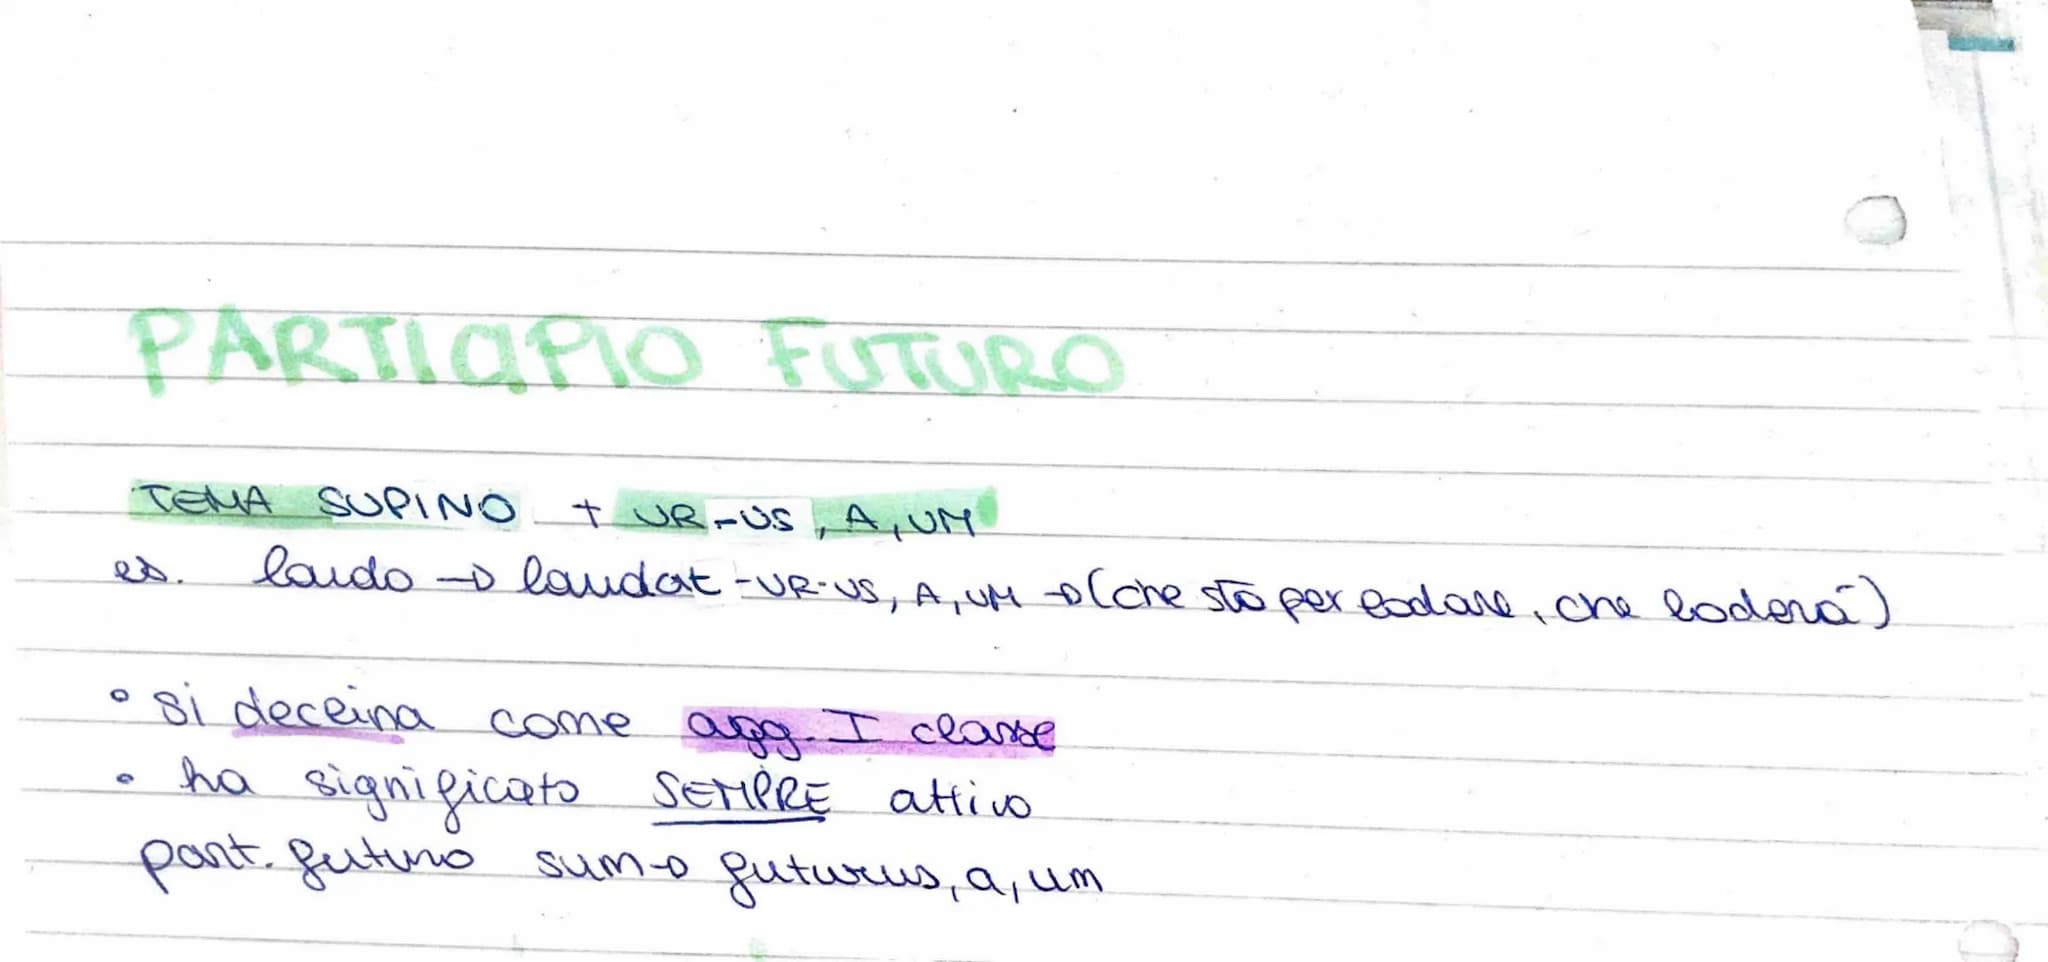 PARTICIPIO FUTURO
TEMA SUPINO + UR-US, A, UM
es. laudo → laudat -UR-US, A, UM → (che sta per lodare, che loderà)
• si declina come agg. I classe
• ha significato SEMPRE attivo
part. futuro sum → futurus, a, um